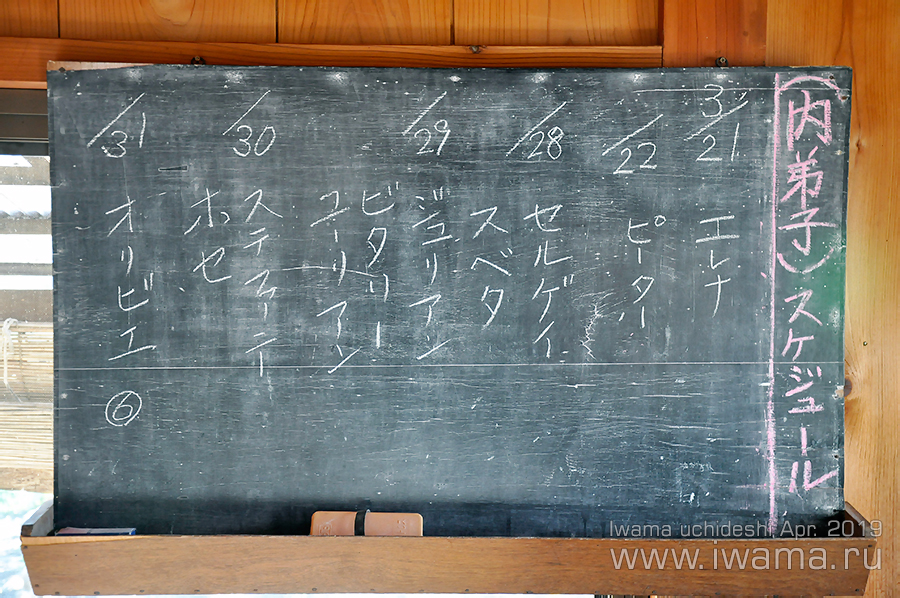 (内弟子)スケジュール
3/21
エレナ
/22
ピーター
/28
セルゲイ
スベタ
/29
ジュリアン
ビタリー
ユーリアン
/30
ホセ
/31
オリビエ
⑥
Iwama uchideshi, Apr. 2019
www.iwama.ru